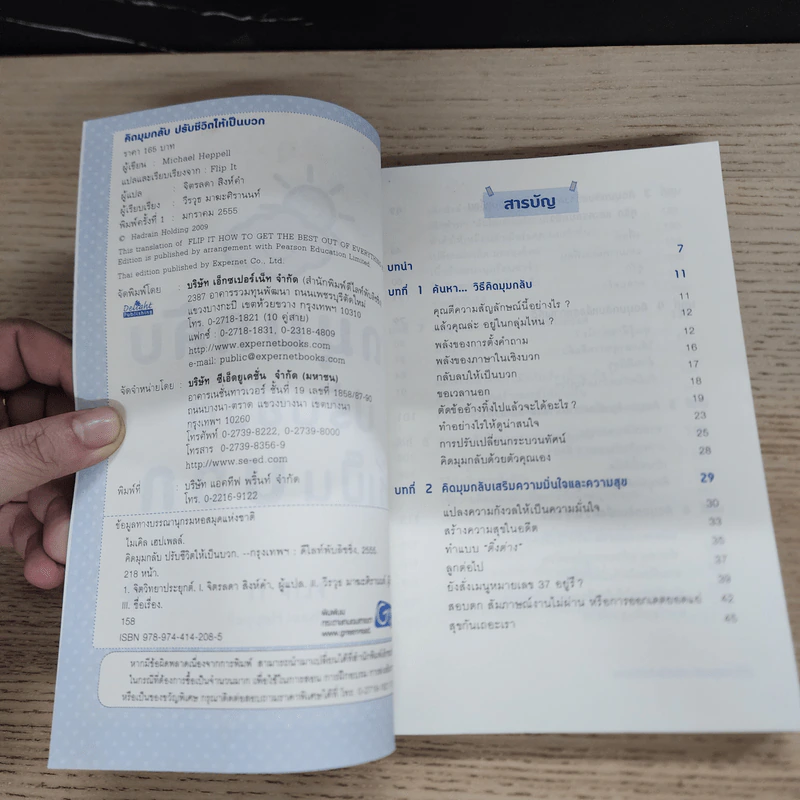 คิดมุมกลับ ปรับชีวิตให้เป็นบวก
ราคา 165 บาท
ผู้เขียน : Michael Heppell
แปลและเรียบเรียงจาก : Flip It
ผู้แปล : จิตรลดา สิงห์คำ
ผู้เรียบเรียง : วีรวุธ มาฆะศิรานนท์
พิมพ์ครั้งที่ 1 : มกราคม 2555
© Hadrain Holding 2009
This translation of FLIP IT HOW TO GET THE BEST OUT OF EVERYTHING
Edition is published by arrangement with Pearson Education Limited.
Thai edition published by Expernet Co., Ltd.
จัดพิมพ์โดย : บริษัท เอ็กซเปอร์เน็ท จำกัด (สำนักพิมพ์ดีไลท์พับลิชชิ่ง)
Delight Publishing
2387 อาคารรวมทุนพัฒนา ถนนเพชรบุรีตัดใหม่
แขวงบางกะปิ เขตห้วยขวาง กรุงเทพฯ 10310
โทร. 0-2718-1821 (10 คู่สาย)
แฟกซ์ : 0-2718-1831, 0-2318-4809
http://www.expernetbooks.com
e-mail: public@expernetbooks.com
จัดจำหน่ายโดย : บริษัท ซีเอ็ดยูเคชั่น จำกัด (มหาชน)
อาคารเนชั่นทาวเวอร์ ชั้นที่ 19 เลขที่ 1858/87-90
ถนนบางนา-ตราด แขวงบางนา เขตบางนา
กรุงเทพฯ 10260
โทรศัพท์ 0-2739-8222, 0-2739-8000
โทรสาร 0-2739-8356-9
http://www.se-ed.com
พิมพ์ที่ : บริษัท แอคทีฟ พริ้นท์ จำกัด
โทร. 0-2216-9122
ข้อมูลทางบรรณานุกรมหอสมุดแห่งชาติ
ไมเคิล เฮปเพลล์.
คิดมุมกลับ ปรับชีวิตให้เป็นบวก. --กรุงเทพฯ : ดีไลท์พับลิชชิ่ง, 2555.
218 หน้า.
1. จิตวิทยาประยุกต์. I. จิตรลดา สิงห์คำ, ผู้แปล. II. วีรวุธ มาฆะศิรานนท์
III. ชื่อเรื่อง.
158
ISBN 978-974-414-208-5
พิมพ์บน
กระดาษถนอมสายตา
www.greenread.
หากมีข้อผิดพลาดเนื่องจากการพิมพ์ สามารถนำมาเปลี่ยนได้ที่สำนักพิมพ์
ในกรณีที่ต้องการซื้อเป็นจำนวนมาก เพื่อใช้ในการสอน การฝึกอบรม
หรือเป็นของขวัญพิเศษ กรุณาติดต่อสอบถามราคาพิเศษได้ที่ โทร.
สารบัญ
บทนำ 7
บทที่ 1 ค้นหา... วิธีคิดมุมกลับ 11
คุณตีความสัญลักษณ์นี้อย่างไร ? 11
แล้วคุณล่ะ อยู่ในกลุ่มไหน ? 12
พลังของการตั้งคำถาม 12
พลังของภาษาในเชิงบวก 16
กลับลบให้เป็นบวก 17
ขอเวลานอก 18
ตัดข้ออ้างทิ้งไปแล้วจะได้อะไร ? 19
ทำอย่างไรให้ดูน่าสนใจ 23
การปรับเปลี่ยนกระบวนทัศน์ 25
คิดมุมกลับด้วยตัวคุณเอง 28
บทที่ 2 คิดมุมกลับเสริมความมั่นใจและความสุข 29
แปลงความกังวลให้เป็นความมั่นใจ 30
สร้างความสุขในอดีต 33
ทำแบบ "ติ๊งต่าง" 35
ลูกต่อไป 37
ยังสั่งเมนูหมายเลข 37 อยู่รึ ? 39
สอบตก สัมภาษณ์งานไม่ผ่าน หรือการออกเดตยอดแย่ 42
สุขกันเถอะเรา 45